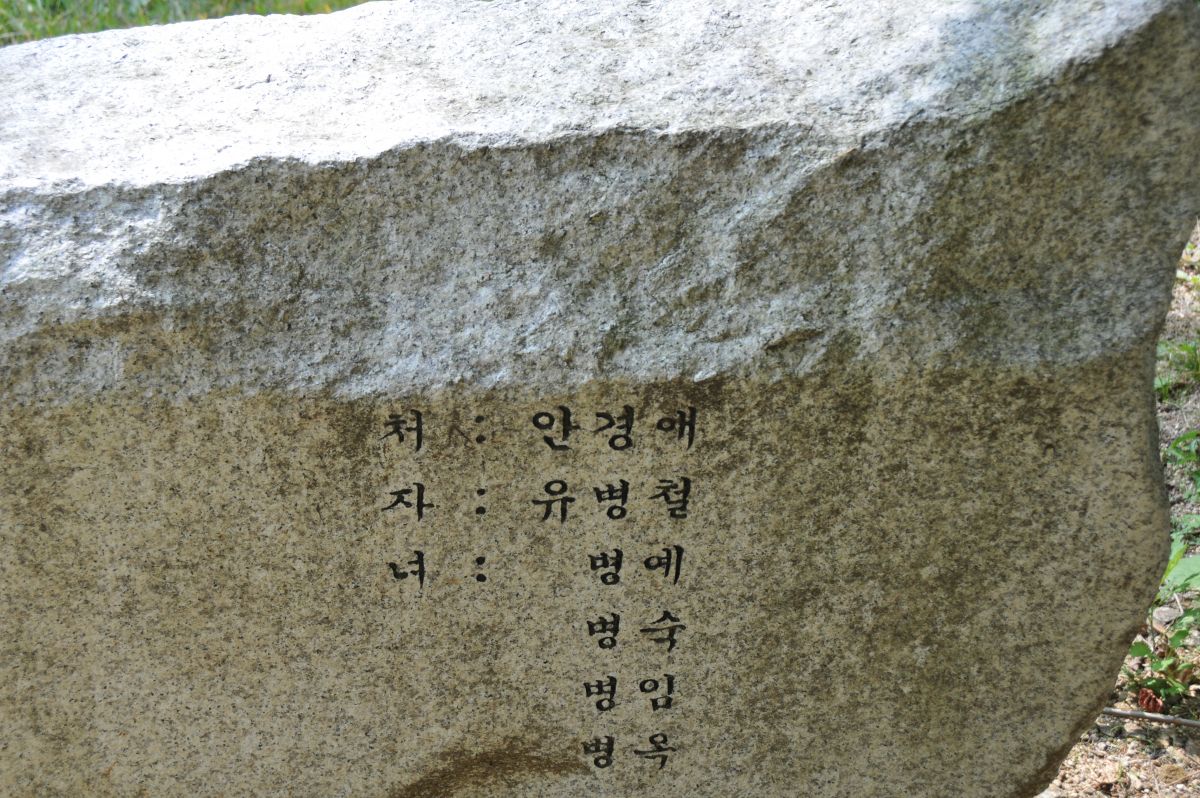 처 : 안경애
자 : 유병철
녀 : 병예
병숙
병임
병옥